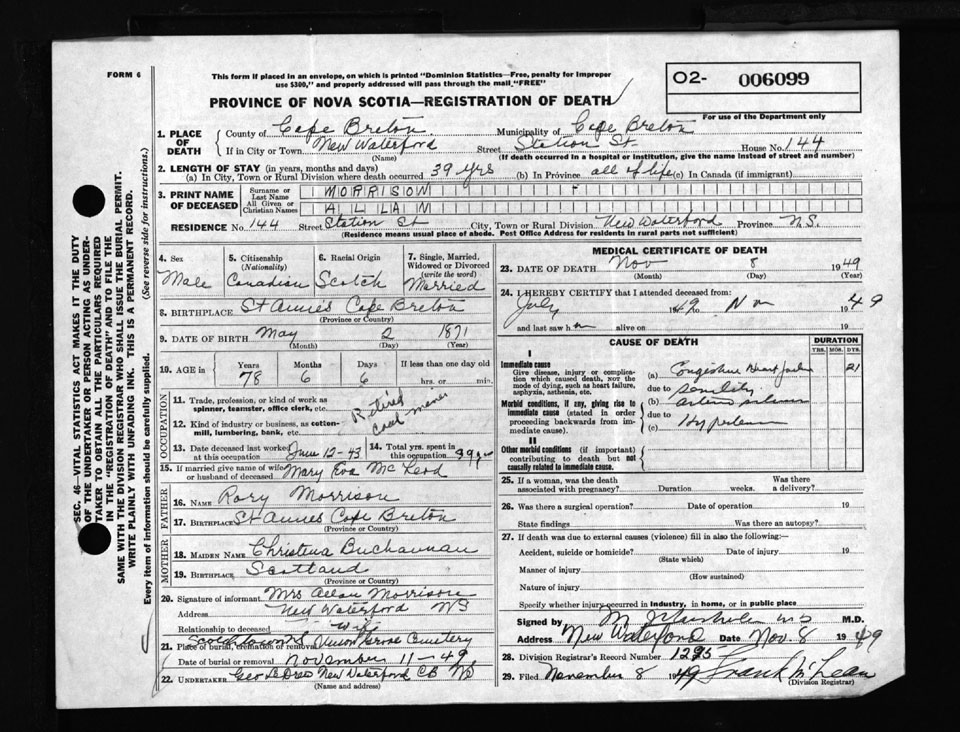 FORM 6
This form if placed in an envelope, on which is printed "Dominion Statistics—Free, penalty for improper
use $300," and properly addressed will pass through the mail "FREE"
O2- 006099
PROVINCE OF NOVA SCOTIA—REGISTRATION OF DEATH
For use of the Department only
1. PLACE OF DEATH
County of Cape Breton Municipality of Cape Breton
If in City or Town New Waterford Street Station St. House No. 144
(Name) (If death occurred in a hospital or institution, give the name instead of street and number)
2. LENGTH OF STAY (in years, months and days)
(a) In City, Town or Rural Division where death occurred 39 yrs (b) In Province all of life (c) In Canada (if immigrant)
3. PRINT NAME OF DECEASED
Surname or Last Name MORRISON
All Given or Christian Names ALLAN
RESIDENCE No. 144 Street Station St City, Town or Rural Division New Waterford Province N.S.
(Residence means usual place of abode. Post Office Address for residents in rural parts not sufficient)
4. Sex
Male
5. Citizenship
(Nationality)
Canadian
6. Racial Origin
Scotch
7. Single, Married, Widowed or Divorced
(write the word)
Married
8. BIRTHPLACE St Annes Cape Breton
(Province or Country)
9. DATE OF BIRTH May 2 1871
(Month) (Day) (Year)
10. AGE in
Years Months Days If less than one day old
78 6 6 hrs. or min.
OCCUPATION
11. Trade, profession, or kind of work as
spinner, teamster, office clerk, etc.
12. Kind of industry or business, as cotton-
mill, lumbering, bank, etc.
Retired
coal miner
13. Date deceased last worked at this occupation June 12-43
14. Total yrs. spent in this occupation
15. If married give name of wife or husband of deceased Mary Eva McLeod
FATHER
16. Name Rory Morrison
17. Birthplace St Annes Cape Breton
(Province or Country)
MOTHER
18. Maiden Name Christena Buchannan
19. Birthplace Scotland
(Province or Country)
20. Signature of informant Mrs Allan Morrison
Address New Waterford NS
Relationship to deceased Wife
21. Place of burial, cremation or removal Union Grove Cemetery
Date of burial or removal November 11-49
22. Undertaker New Waterford CB NS
(Name and address)
MEDICAL CERTIFICATE OF DEATH
23. DATE OF DEATH Nov 8 1949
(Month) (Day) (Year)
24. I HEREBY CERTIFY that I attended deceased from:
July 1949 to Nov 49
and last saw h m alive on 19
CAUSE OF DEATH
DURATION
YRS. MOS. DYS.
I
Immediate cause
Give disease, injury or complica-
tion which caused death, NOT the
mode of dying, such as heart failure,
asphyxia, asthenia, etc.
(a) Congestive Heart Failure 21
due to senility
Morbid conditions, if any, giving rise to
immediate cause (stated in order
proceeding backwards from im-
mediate cause).
(b)
due to
(c)
II
Other morbid conditions (if important)
contributing to death but not
causally related to immediate cause.
25. If a woman, was the death associated with pregnancy? Duration weeks. Was there a delivery?
26. Was there a surgical operation? Date of operation 19
State findings Was there an autopsy?
27. If death was due to external causes (violence) fill in also the following:—
Accident, suicide or homicide? Date of injury 19
(State which)
Manner of injury
(How sustained)
Nature of injury
Specify whether injury occurred in industry, in home, or in public place
Signed by M.D.
Address New Waterford Date Nov. 8 1949
28. Division Registrar's Record Number 1295
29. Filed November 8 1949 Frank McLean
(Division Registrar)
SEC. 46—VITAL STATISTICS ACT MAKES IT THE DUTY
OF THE UNDERTAKER OR PERSON ACTING AS UNDER-
TAKER TO OBTAIN ALL THE PARTICULARS REQUIRED
IN THE "REGISTRATION OF DEATH" AND TO FILE THE
SAME WITH THE DIVISION REGISTRAR WHO SHALL ISSUE THE BURIAL PERMIT.
WRITE PLAINLY WITH UNFADING INK. THIS IS A PERMANENT RECORD.
Every item of information should be carefully supplied. (See reverse side for instructions.)